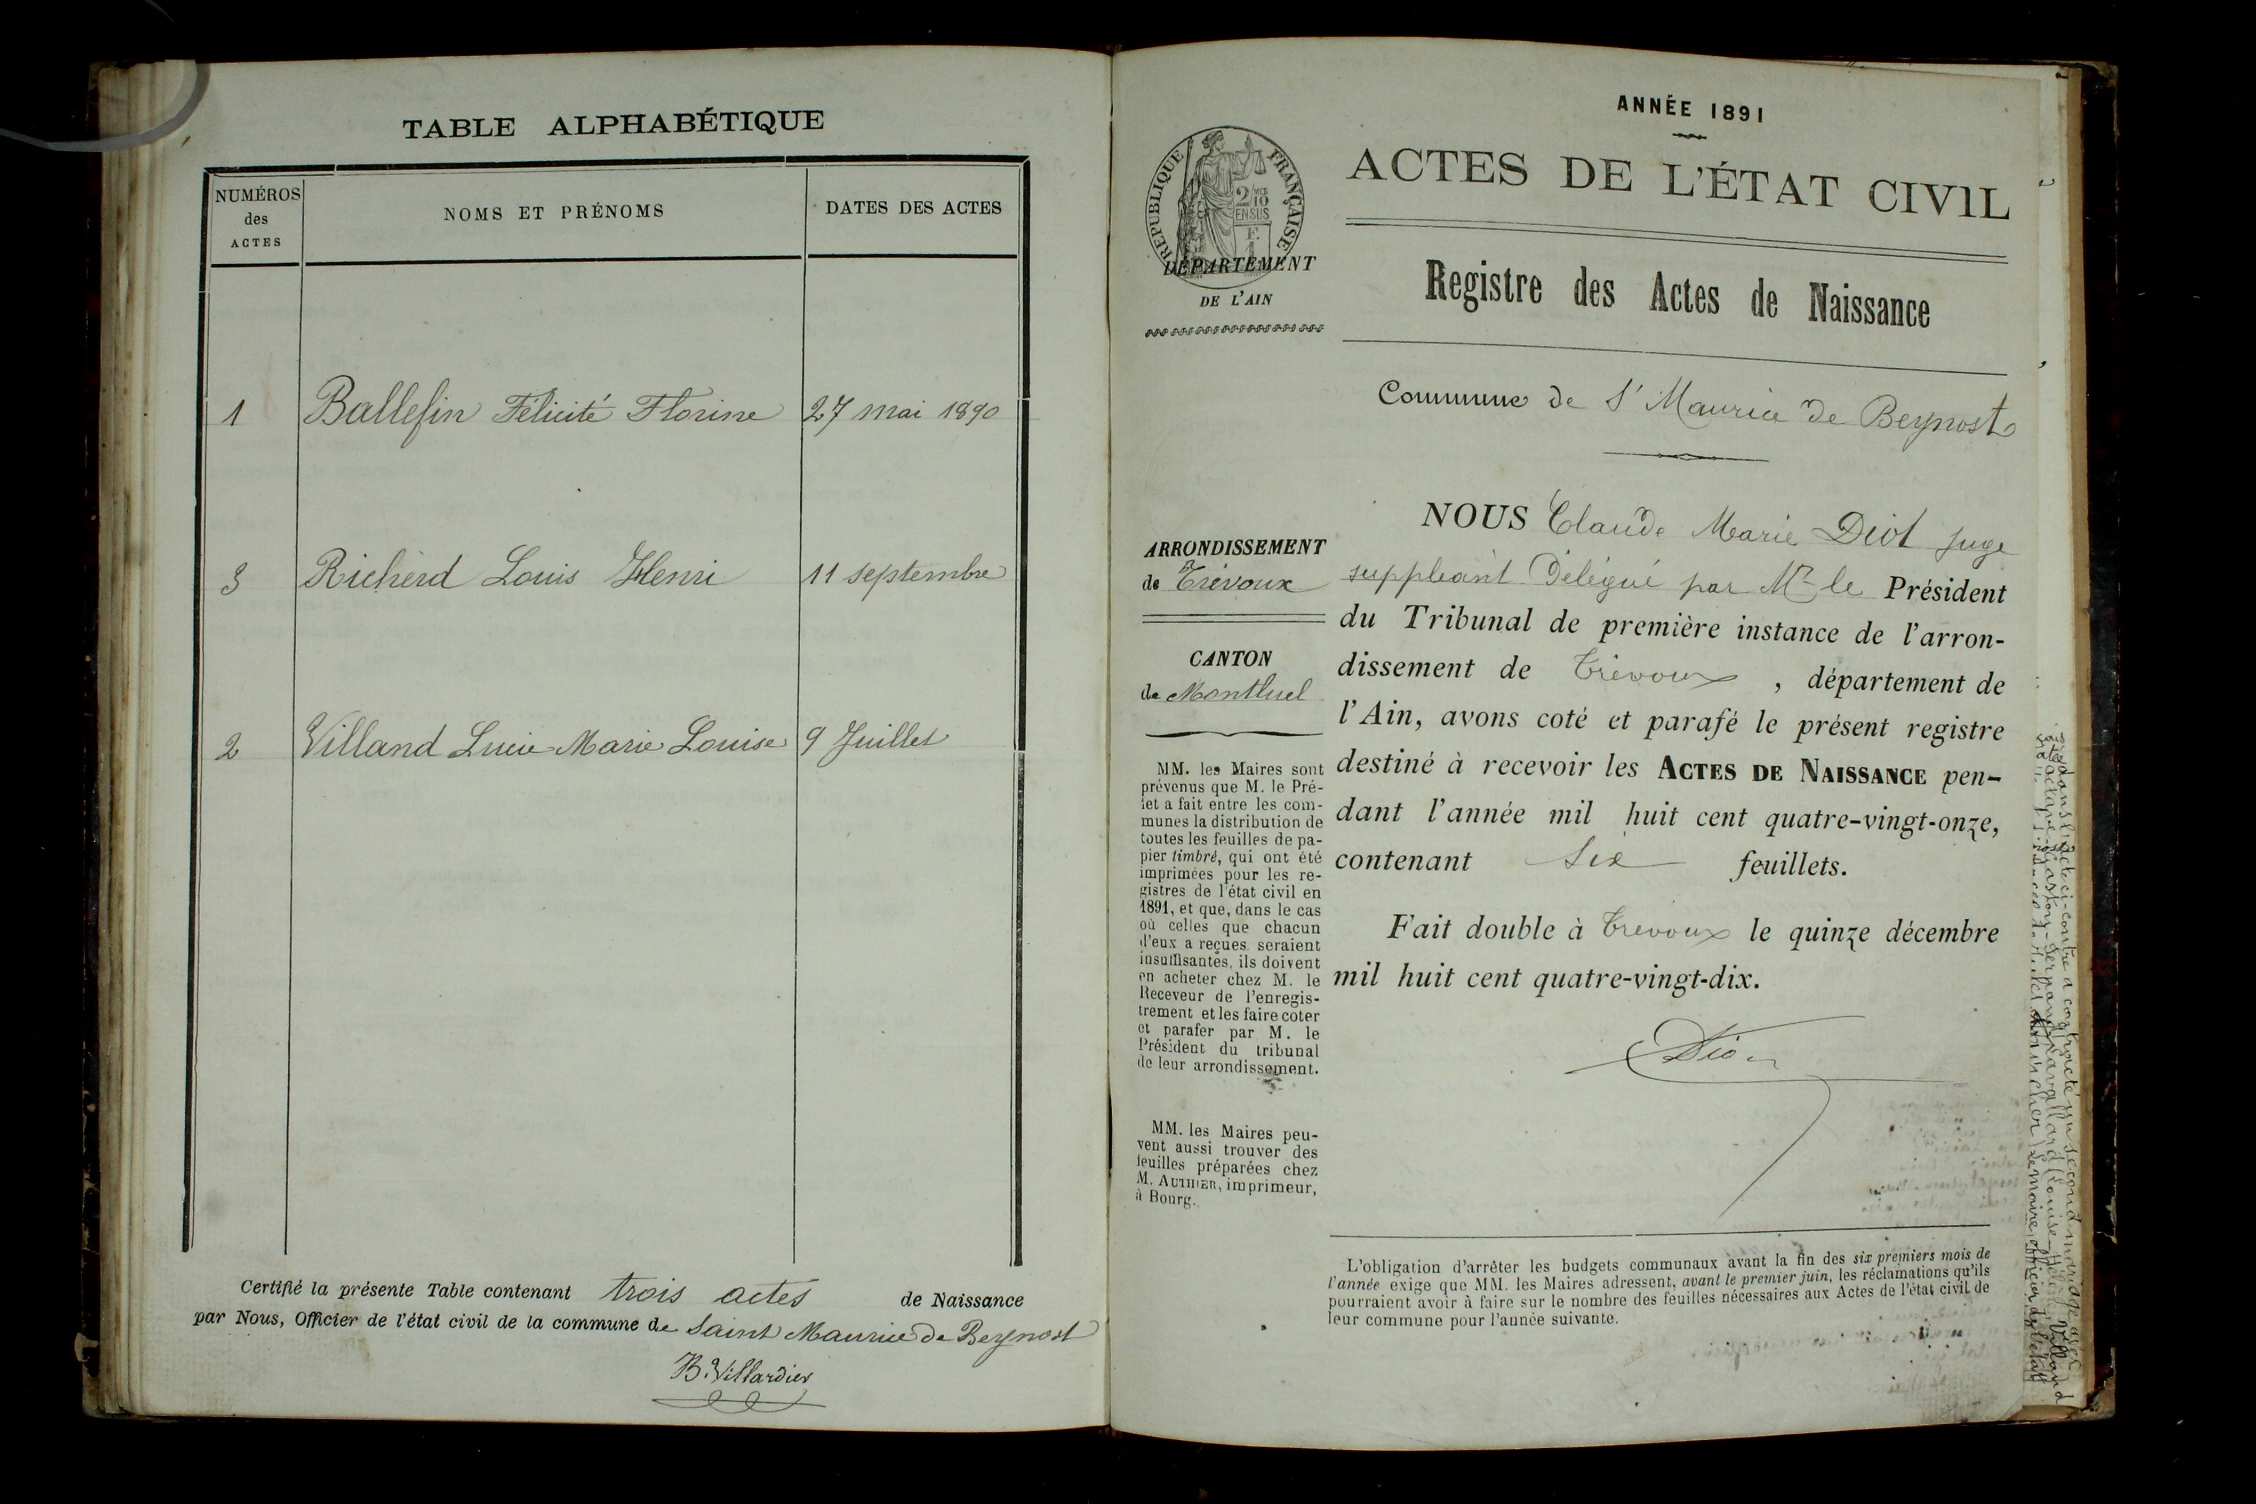 TABLE ALPHABÉTIQUE
NUMÉROS
des
ACTES
NOMS ET PRÉNOMS
DATES DES ACTES
1 Ballefin Félicité Florine 27 mai 1890
3 Richerd Louis Henri 11 septembre
2 Villand Lucie Marie Louise 9 Juillet
Certifié la présente Table contenant trois actes de Naissance
par Nous, Officier de l'état civil de la commune de Saint Maurice de Beynost
B. Villardier
ANNÉE 1891
ACTES DE L'ÉTAT CIVIL
RÉPUBLIQUE FRANÇAISE
2/10
EN SUS
DÉPARTEMENT
DE L'AIN
Registre des Actes de Naissance
Commune de St Maurice de Beynost
ARRONDISSEMENT
de Trévoux
CANTON
de Montluel
MM. les Maires sont
prévenus que M. le Pré-
fet a fait entre les com-
munes la distribution de
toutes les feuilles de pa-
pier timbré, qui ont été
imprimées pour les re-
gistres de l'état civil en
1891, et que, dans le cas
où celles que chacun
d'eux a reçues seraient
insuffisantes, ils doivent
en acheter chez M. le
Receveur de l'enregis-
trement et les faire coter
et parafer par M. le
Président du tribunal
de leur arrondissement.
MM. les Maires peu-
vent aussi trouver des
feuilles préparées chez
M. AUTHIER, imprimeur,
à Bourg.
NOUS Claude Marie Diot juge
suppléant Délégué par Mr le Président
du Tribunal de première instance de l'arron-
dissement de Trévoux, département de
l'Ain, avons coté et parafé le présent registre
destiné à recevoir les ACTES DE NAISSANCE pen-
dant l'année mil huit cent quatre-vingt-onze,
contenant Six feuillets.
Fait double à Trévoux le quinze décembre
mil huit cent quatre-vingt-dix.
Diot
L'obligation d'arrêter les budgets communaux avant la fin des six premiers mois de
l'année exige que MM. les Maires adressent, avant le premier juin, les réclamations qu'ils
pourraient avoir à faire sur le nombre des feuilles nécessaires aux Actes de l'état civil de
leur commune pour l'année suivante.
dans l'acte ci-contre a contracté un second mariage avec